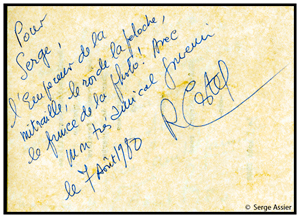 Pour
Serge,
l'Empereur de la
mitraille, le roi de la péloche,
le prince de la photo! Avec
mon très amical souvenir
le 7 Août 1980
© Serge Assier